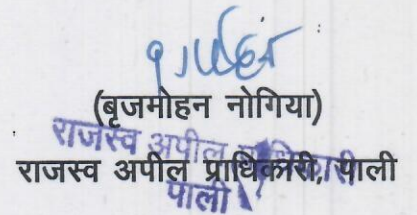 (बृजमोहन नोगिया)
राजस्व अपील प्राधिकारी, पाली
राजस्व अपील
पाली